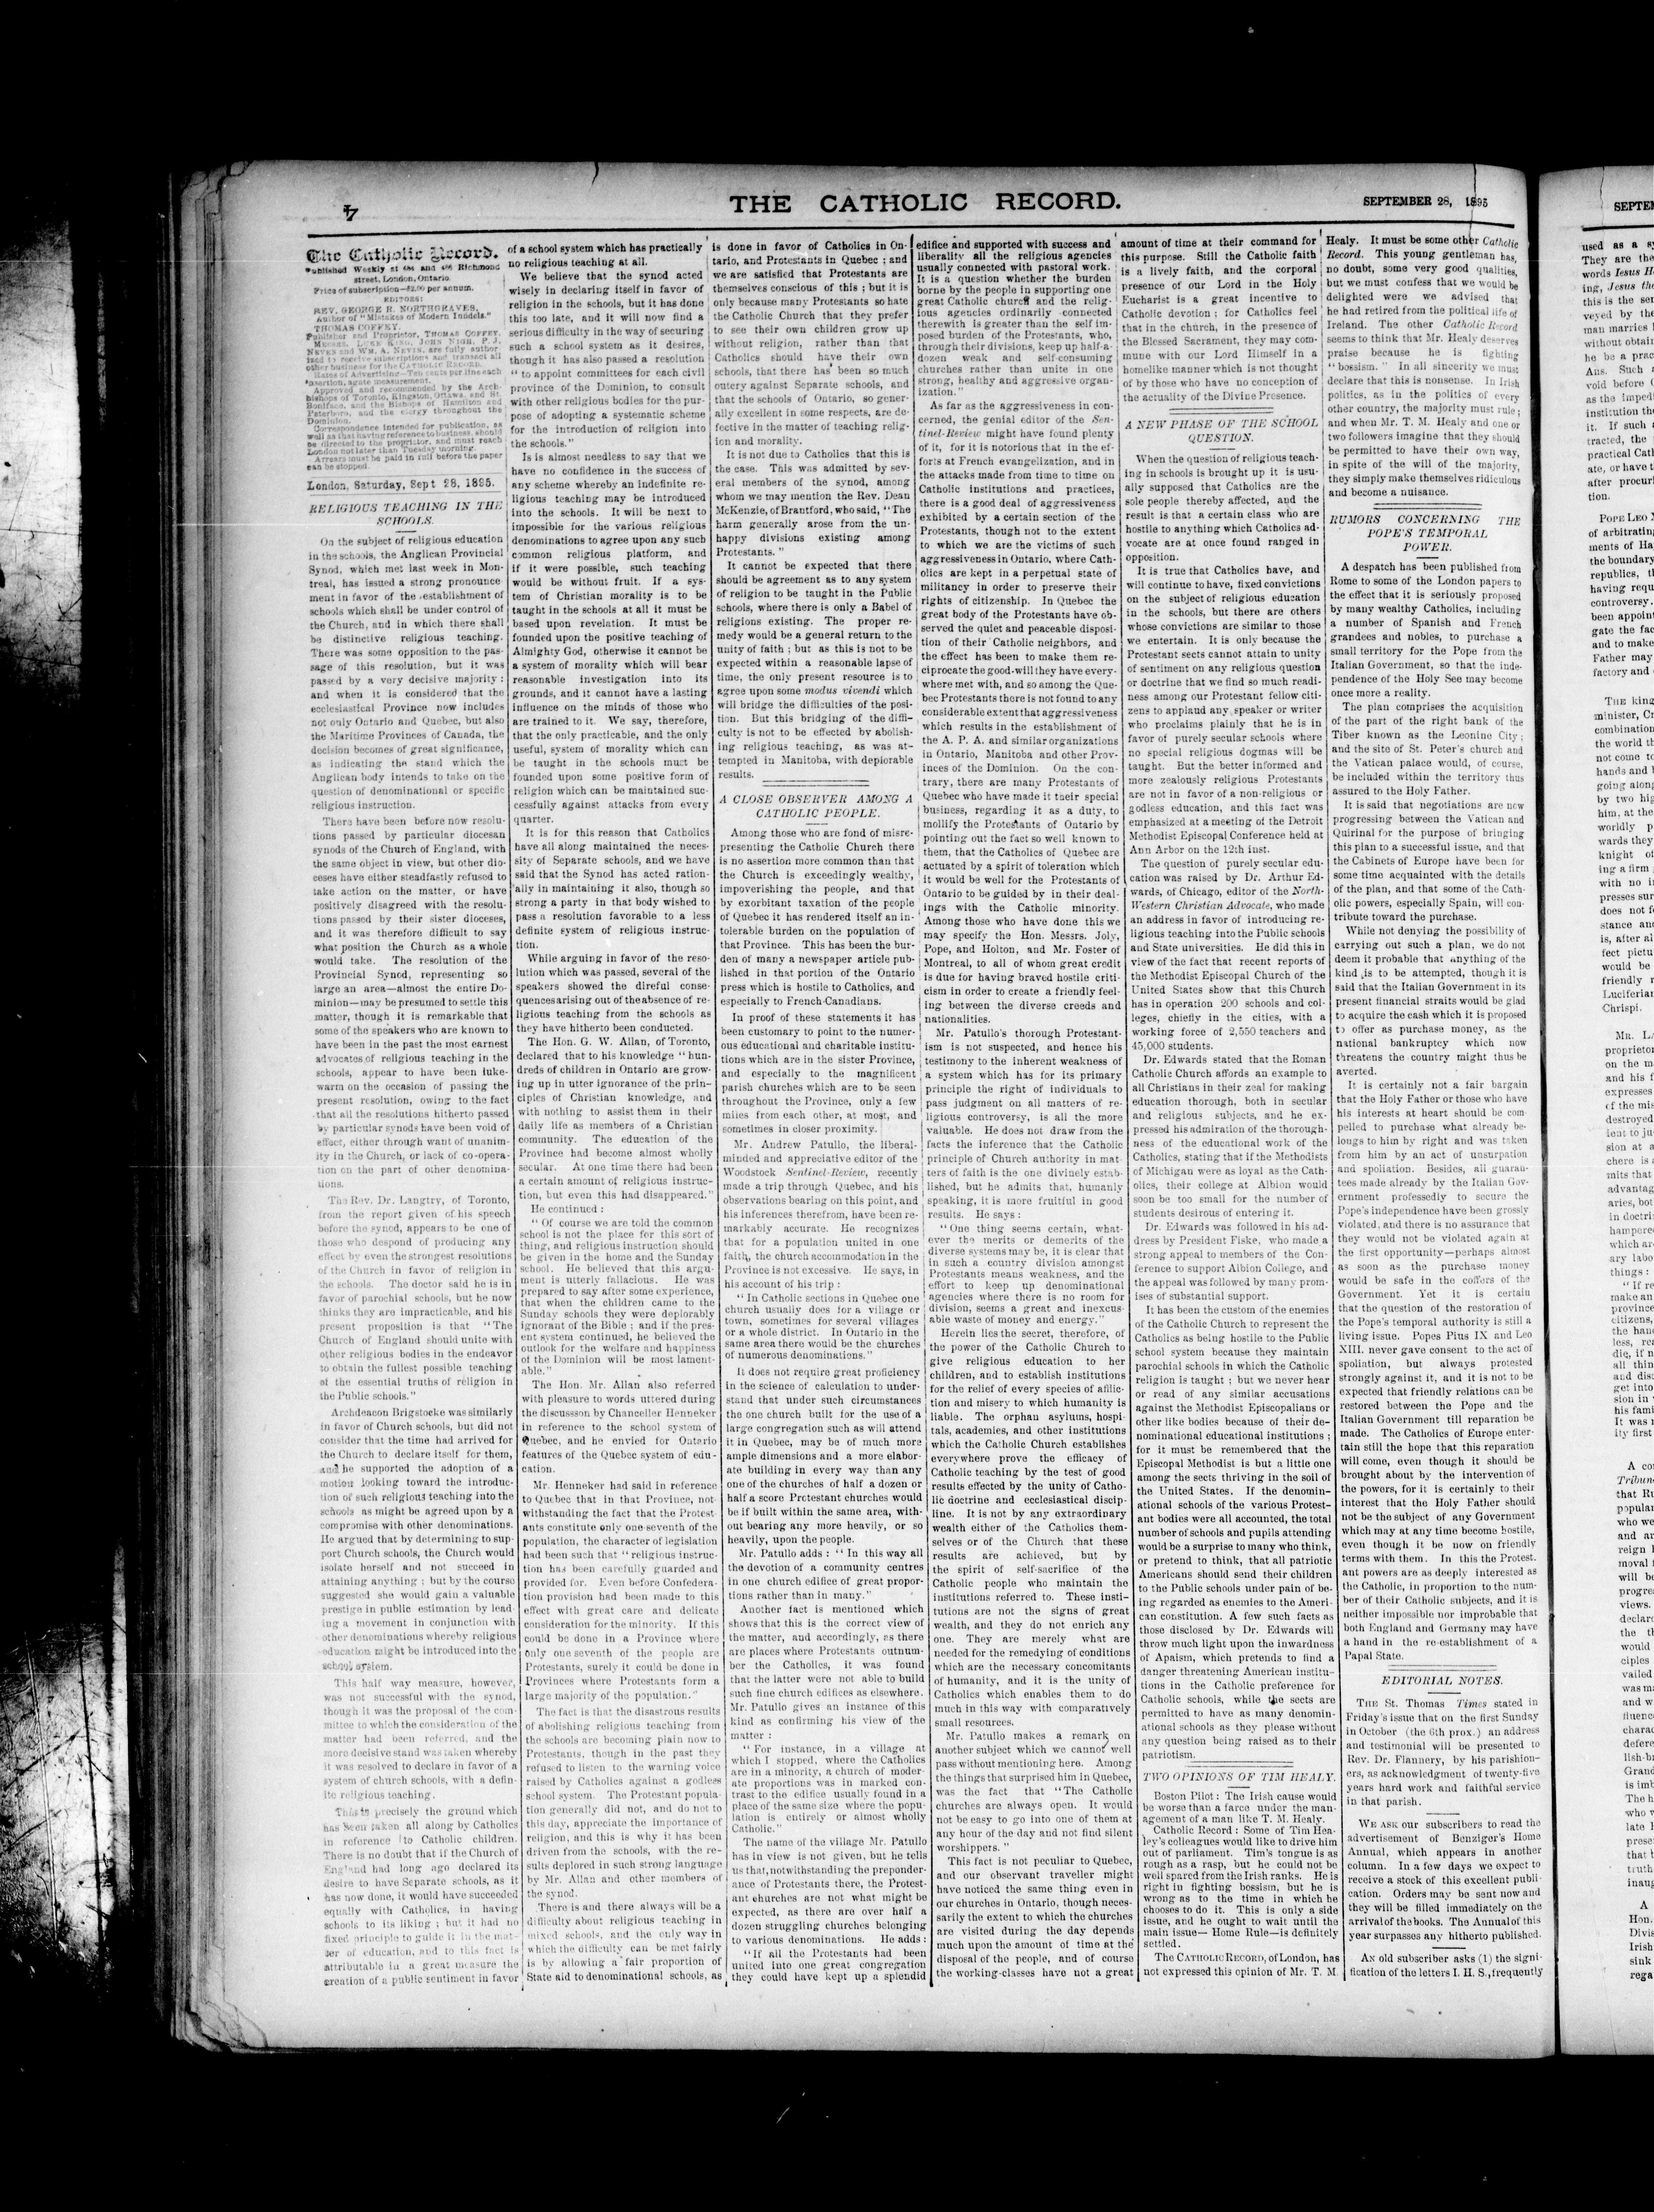 4
THE CATHOLIC RECORD.
SEPTEMBER 28, 1895
The Catholic Record.
Published Weekly at 484 and 486 Richmond
street, London, Ontario.
Price of subscription—$2.00 per annum.
EDITORS:
REV. GEORGE R. NORTHGRAVES,
Author of "Mistakes of Modern Infidels."
THOMAS COFFEY.
Publisher and Proprietor, THOMAS COFFEY.
MESSRS. LUKE KING, JOHN NIGH, P. J.
NEVEN and WM. A. NEVIN, are fully author
ized to receive subscriptions and transact all
other business for the CATHOLIC RECORD.
Rates of Advertising—Ten cents per line each
insertion, agate measurement.
Approved and recommended by the Arch-
bishops of Toronto, Kingston, Ottawa, and St.
Boniface, and the Bishops of Hamilton and
Peterboro, and the clergy throughout the
Dominion.
Correspondence intended for publication, as
well as that having reference to business, should
be directed to the proprietor, and must reach
London not later than Tuesday morning.
Arrears must be paid in full before the paper
can be stopped.
London, Saturday, Sept 28, 1895.
RELIGIOUS TEACHING IN THE
SCHOOLS.
On the subject of religious education
in the schools, the Anglican Provincial
Synod, which met last week in Mon-
treal, has issued a strong pronounce
ment in favor of the establishment of
schools which shall be under control of
the Church, and in which there shall
be distinctive religious teaching.
There was some opposition to the pas-
sage of this resolution, but it was
passed by a very decisive majority:
and when it is considered that the
ecclesiastical Province now includes
not only Ontario and Quebec, but also
the Maritime Provinces of Canada, the
decision becomes of great significance,
as indicating the stand which the
Anglican body intends to take on the
question of denominational or specific
religious instruction.
There have been before now resolu-
tions passed by particular diocesan
synods of the Church of England, with
the same object in view, but other dio-
ceses have either steadfastly refused to
take action on the matter, or have
positively disagreed with the resolu-
tions passed by their sister dioceses,
and it was therefore difficult to say
what position the Church as a whole
would take. The resolution of the
Provincial Synod, representing so
large an area—almost the entire Do-
minion—may be presumed to settle this
matter, though it is remarkable that
some of the speakers who are known to
have been in the past the most earnest
advocates of religious teaching in the
schools, appear to have been luke-
warm on the occasion of passing the
present resolution, owing to the fact
that all the resolutions hitherto passed
by particular synods have been void of
effect, either through want of unanim-
ity in the Church, or lack of co-opera-
tion on the part of other denomina-
tions.
The Rev. Dr. Langtry, of Toronto,
from the report given of his speech
before the synod, appears to be one of
those who despond of producing any
effect by even the strongest resolutions
of the Church in favor of religion in
the schools. The doctor said he is in
favor of parochial schools, but he now
thinks they are impracticable, and his
present proposition is that "The
Church of England should unite with
other religious bodies in the endeavor
to obtain the fullest possible teaching
of the essential truths of religion in
the Public schools."
Archdeacon Brigstocke was similarly
in favor of Church schools, but did not
consider that the time had arrived for
the Church to declare itself for them,
and he supported the adoption of a
motion looking toward the introduc-
tion of such religious teaching into the
schools as might be agreed upon by a
compromise with other denominations.
He argued that by determining to sup-
port Church schools, the Church would
isolate herself and not succeed in
attaining anything; but by the course
suggested she would gain a valuable
prestige in public estimation by lead
ing a movement in conjunction with
other denominations whereby religious
education might be introduced into the
school system.
This half way measure, however,
was not successful with the synod,
though it was the proposal of the com-
mittee to which the consideration of the
matter had been referred, and the
more decisive stand was taken whereby
it was resolved to declare in favor of a
system of church schools, with a defin-
ite religious teaching.
This is precisely the ground which
has been taken all along by Catholics
in reference to Catholic children.
There is no doubt that if the Church of
England had long ago declared its
desire to have Separate schools, as it
has now done, it would have succeeded
equally with Catholics, in having
schools to its liking; but it had no
fixed principle to guide it in the mat-
ter of education, and to this fact is
attributable in a great measure the
creation of a public sentiment in favor
of a school system which has practically
no religious teaching at all.
We believe that the synod acted
wisely in declaring itself in favor of
religion in the schools, but it has done
this too late, and it will now find a
serious difficulty in the way of securing
such a school system as it desires,
though it has also passed a resolution
"to appoint committees for each civil
province of the Dominion, to consult
with other religious bodies for the pur-
pose of adopting a systematic scheme
for the introduction of religion into
the schools."
Is is almost needless to say that we
have no confidence in the success of
any scheme whereby an indefinite re-
ligious teaching may be introduced
into the schools. It will be next to
impossible for the various religious
denominations to agree upon any such
common religious platform, and
if it were possible, such teaching
would be without fruit. If a sys-
tem of Christian morality is to be
taught in the schools at all it must be
based upon revelation. It must be
founded upon the positive teaching of
Almighty God, otherwise it cannot be
a system of morality which will bear
reasonable investigation into its
grounds, and it cannot have a lasting
influence on the minds of those who
are trained to it. We say, therefore,
that the only practicable, and the only
useful, system of morality which can
be taught in the schools must be
founded upon some positive form of
religion which can be maintained suc-
cessfully against attacks from every
quarter.
It is for this reason that Catholics
have all along maintained the neces-
sity of Separate schools, and we have
said that the Synod has acted ration-
ally in maintaining it also, though so
strong a party in that body wished to
pass a resolution favorable to a less
definite system of religious instruc-
tion.
While arguing in favor of the reso-
lution which was passed, several of the
speakers showed the direful conse-
quences arising out of the absence of re-
ligious teaching from the schools as
they have hitherto been conducted.
The Hon. G. W. Allan, of Toronto,
declared that to his knowledge "hun-
dreds of children in Ontario are grow-
ing up in utter ignorance of the prin-
ciples of Christian knowledge, and
with nothing to assist them in their
daily life as members of a Christian
community. The education of the
Province had become almost wholly
secular. At one time there had been
a certain amount of religious instruc-
tion, but even this had disappeared."
He continued:
"Of course we are told the common
school is not the place for this sort of
thing, and religious instruction should
be given in the home and the Sunday
school. He believed that this argu-
ment is utterly fallacious. He was
prepared to say after some experience,
that when the children came to the
Sunday schools they were deplorably
ignorant of the Bible; and if the pres-
ent system continued, he believed the
outlook for the welfare and happiness
of the Dominion will be most lament-
able."
The Hon. Mr. Allan also referred
with pleasure to words uttered during
the discussson by Chancellor Henneker
in reference to the school system of
Quebec, and he envied for Ontario
features of the Quebec system of edu-
cation.
Mr. Henneker had said in reference
to Quebec that in that Province, not-
withstanding the fact that the Protest
ants constitute only one-seventh of the
population, the character of legislation
had been such that "religious instruc-
tion has been carefully guarded and
provided for. Even before Confedera-
tion provision had been made to this
effect with great care and delicate
consideration for the minority. If this
could be done in a Province where
only one seventh of the people are
Protestants, surely it could be done in
Provinces where Protestants form a
large majority of the population."
The fact is that the disastrous results
of abolishing religious teaching from
the schools are becoming plain now to
Protestants, though in the past they
refused to listen to the warning voice
raised by Catholics against a godless
school system. The Protestant popula-
tion generally did not, and do not to
this day, appreciate the importance of
religion, and this is why it has been
driven from the schools, with the re-
sults deplored in such strong language
by Mr. Allan and other members of
the synod.
There is and there always will be a
difficulty about religious teaching in
mixed schools, and the only way in
which the difficulty can be met fairly
is by allowing a fair proportion of
State aid to denominational schools, as
is done in favor of Catholics in On-
tario, and Protestants in Quebec; and
we are satisfied that Protestants are
themselves conscious of this; but it is
only because many Protestants so hate
the Catholic Church that they prefer
to see their own children grow up
without religion, rather than that
Catholics should have their own
schools, that there has been so much
outcry against Separate schools, and
that the schools of Ontario, so gener-
ally excellent in some respects, are de-
fective in the matter of teaching relig-
ion and morality.
It is not due to Catholics that this is
the case. This was admitted by sev-
eral members of the synod, among
whom we may mention the Rev. Dean
McKenzie, of Brantford, who said, "The
harm generally arose from the un-
happy divisions existing among
Protestants."
It cannot be expected that there
should be agreement as to any system
of religion to be taught in the Public
schools, where there is only a Babel of
religions existing. The proper re-
medy would be a general return to the
unity of faith; but as this is not to be
expected within a reasonable lapse of
time, the only present resource is to
agree upon some modus vivendi which
will bridge the difficulties of the posi-
tion. But this bridging of the diffi-
culty is not to be effected by abolish-
ing religious teaching, as was at-
tempted in Manitoba, with deplorable
results.
A CLOSE OBSERVER AMONG A
CATHOLIC PEOPLE.
Among those who are fond of misre-
presenting the Catholic Church there
is no assertion more common than that
the Church is exceedingly wealthy,
impoverishing the people, and that
by exorbitant taxation of the people
of Quebec it has rendered itself an in-
tolerable burden on the population of
that Province. This has been the bur-
den of many a newspaper article pub-
lished in that portion of the Ontario
press which is hostile to Catholics, and
especially to French-Canadians.
In proof of these statements it has
been customary to point to the numer-
ous educational and charitable institu-
tions which are in the sister Province,
and especially to the magnificent
parish churches which are to be seen
throughout the Province, only a few
miles from each other, at most, and
sometimes in closer proximity.
Mr. Andrew Patullo, the liberal-
minded and appreciative editor of the
Woodstock Sentinel-Review, recently
made a trip through Quebec, and his
observations bearing on this point, and
his inferences therefrom, have been re-
markably accurate. He recognizes
that for a population united in one
faith, the church accommodation in the
Province is not excessive. He says, in
his account of his trip:
"In Catholic sections in Quebec one
church usually does for a village or
town, sometimes for several villages
or a whole district. In Ontario in the
same area there would be the churches
of numerous denominations."
It does not require great proficiency
in the science of calculation to under-
stand that under such circumstances
the one church built for the use of a
large congregation such as will attend
it in Quebec, may be of much more
ample dimensions and a more elabor-
ate building in every way than any
one of the churches of half a dozen or
half a score Protestant churches would
be if built within the same area, with-
out bearing any more heavily, or so
heavily, upon the people.
Mr. Patullo adds: "In this way all
the devotion of a community centres
in one church edifice of great propor-
tions rather than in many."
Another fact is mentioned which
shows that this is the correct view of
the matter, and accordingly, as there
are places where Protestants outnum-
ber the Catholics, it was found
that the latter were not able to build
such fine church edifices as elsewhere.
Mr. Patullo gives an instance of this
kind as confirming his view of the
matter:
"For instance, in a village at
which I stopped, where the Catholics
are in a minority, a church of moder-
ate proportions was in marked con-
trast to the edifice usually found in a
place of the same size where the popu-
lation is entirely or almost wholly
Catholic."
The name of the village Mr. Patullo
has in view is not given, but he tells
us that, notwithstanding the preponder-
ance of Protestants there, the Protest-
ant churches are not what might be
expected, as there are over half a
dozen struggling churches belonging
to various denominations. He adds:
"If all the Protestants had been
united into one great congregation
they could have kept up a splendid
edifice and supported with success and
liberality all the religious agencies
usually connected with pastoral work.
It is a question whether the burden
borne by the people in supporting one
great Catholic church and the relig-
ious agencies ordinarily connected
therewith is greater than the self im-
posed burden of the Protestants, who,
through their divisions, keep up half-a-
dozen weak and self-consuming
churches rather than unite in one
strong, healthy and aggressive organ-
ization."
As far as the aggressiveness in con-
cerned, the genial editor of the Sen-
tinel-Review might have found plenty
of it, for it is notorious that in the ef-
forts at French evangelization, and in
the attacks made from time to time on
Catholic institutions and practices,
there is a good deal of aggressiveness
exhibited by a certain section of the
Protestants, though not to the extent
to which we are the victims of such
aggressiveness in Ontario, where Cath-
olics are kept in a perpetual state of
militancy in order to preserve their
rights of citizenship. In Quebec the
great body of the Protestants have ob-
served the quiet and peaceable disposi-
tion of their Catholic neighbors, and
the effect has been to make them re-
ciprocate the good-will they have every-
where met with, and so among the Que-
bec Protestants there is not found to any
considerable extent that aggressiveness
which results in the establishment of
the A. P. A. and similar organizations
in Ontario, Manitoba and other Prov-
inces of the Dominion. On the con-
trary, there are many Protestants of
Quebec who have made it their special
business, regarding it as a duty, to
mollify the Protestants of Ontario by
pointing out the fact so well known to
them, that the Catholics of Quebec are
actuated by a spirit of toleration which
it would be well for the Protestants of
Ontario to be guided by in their deal-
ings with the Catholic minority.
Among those who have done this we
may specify the Hon. Messrs. Joly,
Pope, and Holton, and Mr. Foster of
Montreal, to all of whom great credit
is due for having braved hostile criti-
cism in order to create a friendly feel-
ing between the diverse creeds and
nationalities.
Mr. Patullo's thorough Protestant-
ism is not suspected, and hence his
testimony to the inherent weakness of
a system which has for its primary
principle the right of individuals to
pass judgment on all matters of re-
ligious controversy, is all the more
valuable. He does not draw from the
facts the inference that the Catholic
principle of Church authority in mat-
ters of faith is the one divinely estab-
lished, but he admits that, humanly
speaking, it is more fruitful in good
results. He says:
"One thing seems certain, what-
ever the merits or demerits of the
diverse systems may be, it is clear that
in such a country division amongst
Protestants means weakness, and the
effort to keep up denominational
agencies where there is no room for
division, seems a great and inexcus-
able waste of money and energy."
Herein lies the secret, therefore, of
the power of the Catholic Church to
give religious education to her
children, and to establish institutions
for the relief of every species of afflic-
tion and misery to which humanity is
liable. The orphan asylums, hospi-
tals, academies, and other institutions
which the Catholic Church establishes
everywhere prove the efficacy of
Catholic teaching by the test of good
results effected by the unity of Catho-
lic doctrine and ecclesiastical discip-
line. It is not by any extraordinary
wealth either of the Catholics them-
selves or of the Church that these
results are achieved, but by
the spirit of self-sacrifice of the
Catholic people who maintain the
institutions referred to. These insti-
tutions are not the signs of great
wealth, and they do not enrich any
one. They are merely what are
needed for the remedying of conditions
which are the necessary concomitants
of humanity, and it is the unity of
Catholics which enables them to do
much in this way with comparatively
small resources.
Mr. Patullo makes a remark on
another subject which we cannot well
pass without mentioning here. Among
the things that surprised him in Quebec,
was the fact that "The Catholic
churches are always open. It would
not be easy to go into one of them at
any hour of the day and not find silent
worshippers."
This fact is not peculiar to Quebec,
and our observant traveller might
have noticed the same thing even in
our churches in Ontario, though neces-
sarily the extent to which the churches
are visited during the day depends
much upon the amount of time at the
disposal of the people, and of course
the working-classes have not a great
amount of time at their command for
this purpose. Still the Catholic faith
is a lively faith, and the corporal
presence of our Lord in the Holy
Eucharist is a great incentive to
Catholic devotion; for Catholics feel
that in the church, in the presence of
the Blessed Sacrament, they may com-
mune with our Lord Himself in a
homelike manner which is not thought
of by those who have no conception of
the actuality of the Divine Presence.
A NEW PHASE OF THE SCHOOL
QUESTION.
When the question of religious teach-
ing in schools is brought up it is usu-
ally supposed that Catholics are the
sole people thereby affected, and the
result is that a certain class who are
hostile to anything which Catholics ad-
vocate are at once found ranged in
opposition.
It is true that Catholics have, and
will continue to have, fixed convictions
on the subject of religious education
in the schools, but there are others
whose convictions are similar to those
we entertain. It is only because the
Protestant sects cannot attain to unity
of sentiment on any religious question
or doctrine that we find so much readi-
ness among our Protestant fellow citi-
zens to applaud any speaker or writer
who proclaims plainly that he is in
favor of purely secular schools where
no special religious dogmas will be
taught. But the better informed and
more zealously religious Protestants
are not in favor of a non-religious or
godless education, and this fact was
emphasized at a meeting of the Detroit
Methodist Episcopal Conference held at
Ann Arbor on the 12th inst.
The question of purely secular edu-
cation was raised by Dr. Arthur Ed-
wards, of Chicago, editor of the North-
Western Christian Advocate, who made
an address in favor of introducing re-
ligious teaching into the Public schools
and State universities. He did this in
view of the fact that recent reports of
the Methodist Episcopal Church of the
United States show that this Church
has in operation 200 schools and col-
leges, chiefly in the cities, with a
working force of 2,550 teachers and
45,000 students.
Dr. Edwards stated that the Roman
Catholic Church affords an example to
all Christians in their zeal for making
education thorough, both in secular
and religious subjects, and he ex-
pressed his admiration of the thorough-
ness of the educational work of the
Catholics, stating that if the Methodists
of Michigan were as loyal as the Cath-
olics, their college at Albion would
soon be too small for the number of
students desirous of entering it.
Dr. Edwards was followed in his ad-
dress by President Fiske, who made a
strong appeal to members of the Con-
ference to support Albion College, and
the appeal was followed by many prom-
ises of substantial support.
It has been the custom of the enemies
of the Catholic Church to represent the
Catholics as being hostile to the Public
school system because they maintain
parochial schools in which the Catholic
religion is taught; but we never hear
or read of any similar accusations
against the Methodist Episcopalians or
other like bodies because of their de-
nominational educational institutions;
for it must be remembered that the
Episcopal Methodist is but a little one
among the sects thriving in the soil of
the United States. If the denomin-
ational schools of the various Protest-
ant bodies were all accounted, the total
number of schools and pupils attending
would be a surprise to many who think,
or pretend to think, that all patriotic
Americans should send their children
to the Public schools under pain of be-
ing regarded as enemies to the Ameri-
can constitution. A few such facts as
those disclosed by Dr. Edwards will
throw much light upon the inwardness
of Apaism, which pretends to find a
danger threatening American institu-
tions in the Catholic preference for
Catholic schools, while the sects are
permitted to have as many denomin-
ational schools as they please without
any question being raised as to their
patriotism.
TWO OPINIONS OF TIM HEALY.
Boston Pilot: The Irish cause would
be worse than a farce under the man-
agement of a man like T. M. Healy.
Catholic Record: Some of Tim Hea-
ley's colleagues would like to drive him
out of parliament. Tim's tongue is as
rough as a rasp, but he could not be
well spared from the Irish ranks. He is
right in fighting bossism, but he is
wrong as to the time in which he
chooses to do it. This is only a side
issue, and he ought to wait until the
main issue—Home Rule—is definitely
settled.
The CATHOLIC RECORD, of London, has
not expressed this opinion of Mr. T. M.
Healy. It must be some other Catholic
Record. This young gentleman has,
no doubt, some very good qualities,
but we must confess that we would be
delighted were we advised that
he had retired from the political life of
Ireland. The other Catholic Record
seems to think that Mr. Healy deserves
praise because he is fighting
"bossism." In all sincerity we must
declare that this is nonsense. In Irish
politics, as in the politics of every
other country, the majority must rule;
and when Mr. T. M. Healy and one or
two followers imagine that they should
be permitted to have their own way,
in spite of the will of the majority,
they simply make themselves ridiculous
and become a nuisance.
RUMORS CONCERNING THE
POPE'S TEMPORAL
POWER.
A despatch has been published from
Rome to some of the London papers to
the effect that it is seriously proposed
by many wealthy Catholics, including
a number of Spanish and French
grandees and nobles, to purchase a
small territory for the Pope from the
Italian Government, so that the inde-
pendence of the Holy See may become
once more a reality.
The plan comprises the acquisition
of the part of the right bank of the
Tiber known as the Leonine City;
and the site of St. Peter's church and
the Vatican palace would, of course,
be included within the territory thus
assured to the Holy Father.
It is said that negotiations are now
progressing between the Vatican and
Quirinal for the purpose of bringing
this plan to a successful issue, and that
the Cabinets of Europe have been for
some time acquainted with the details
of the plan, and that some of the Cath-
olic powers, especially Spain, will con-
tribute toward the purchase.
While not denying the possibility of
carrying out such a plan, we do not
deem it probable that anything of the
kind is to be attempted, though it is
said that the Italian Government in its
present financial straits would be glad
to acquire the cash which it is proposed
to offer as purchase money, as the
national bankruptcy which now
threatens the country might thus be
averted.
It is certainly not a fair bargain
that the Holy Father or those who have
his interests at heart should be com
pelled to purchase what already be-
longs to him by right and was taken
from him by an act of usurpation
and spoliation. Besides, all guaran-
tees made already by the Italian Gov-
ernment professedly to secure the
Pope's independence have been grossly
violated, and there is no assurance that
they would not be violated again at
the first opportunity—perhaps almost
as soon as the purchase money
would be safe in the coffers of the
Government. Yet it is certain
that the question of the restoration of
the Pope's temporal authority is still a
living issue. Popes Pius IX and Leo
XIII. never gave consent to the act of
spoliation, but always protested
strongly against it, and it is not to be
expected that friendly relations can be
restored between the Pope and the
Italian Government till reparation be
made. The Catholics of Europe enter-
tain still the hope that this reparation
will come, even though it should be
brought about by the intervention of
the powers, for it is certainly to their
interest that the Holy Father should
not be the subject of any Government
which may at any time become hostile,
even though it be now on friendly
terms with them. In this the Protest.
ant powers are as deeply interested as
the Catholic, in proportion to the num-
ber of their Catholic subjects, and it is
neither impossible nor improbable that
both England and Germany may have
a hand in the re-establishment of a
Papal State.
EDITORIAL NOTES.
THE St. Thomas Times stated in
Friday's issue that on the first Sunday
in October (the 6th prox.) an address
and testimonial will be presented to
Rev. Dr. Flannery, by his parishion-
ers, as acknowledgment of twenty-five
years hard work and faithful service
in that parish.
WE ASK our subscribers to read the
advertisement of Benziger's Home
Annual, which appears in another
column. In a few days we expect to
receive a stock of this excellent publi-
cation. Orders may be sent now and
they will be filled immediately on the
arrival of the books. The Annual of this
year surpasses any hitherto published.
AN old subscriber asks (1) the signi-
fication of the letters I. H. S., frequently